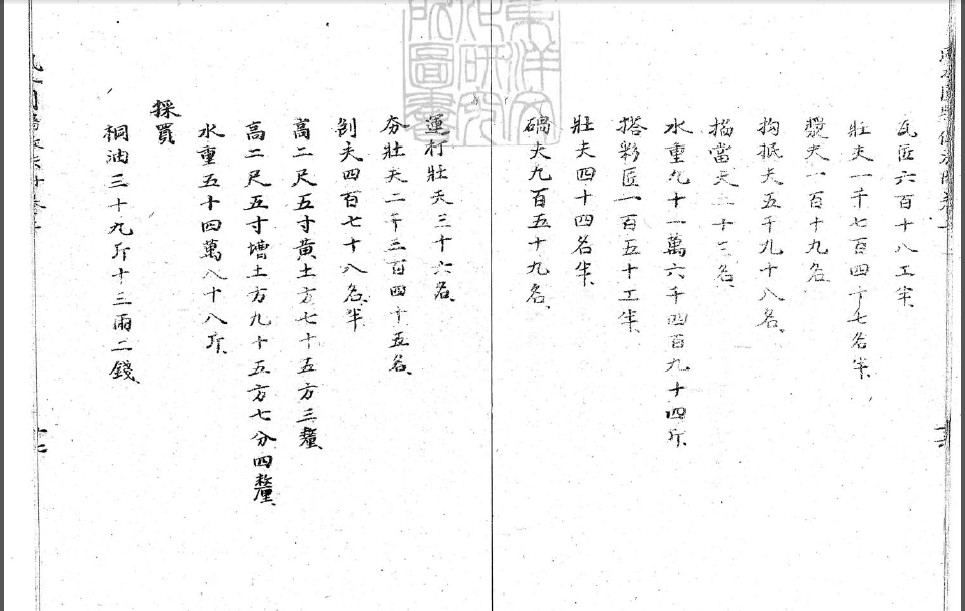 瓦匠六百十八工半
壯夫一千七百四十七名半
漿夫一百十九名
拘抿夫五千九十八名
當夫二十三名
水重九十一萬六千四百九十四斤
搭彩匠一百五十工半
壯夫四十四名半
硪夫九百五十九名
運打壯夫三十六名
夯壯夫二千三百四十五名
刨夫四百七十八名半
高二尺五寸黃土方七十五方三釐
高二尺五寸墻土方九十五方七分四釐
水重五十四萬八十八斤
採買
桐油三十九斤十三兩二錢
東洋文化研究所圖書